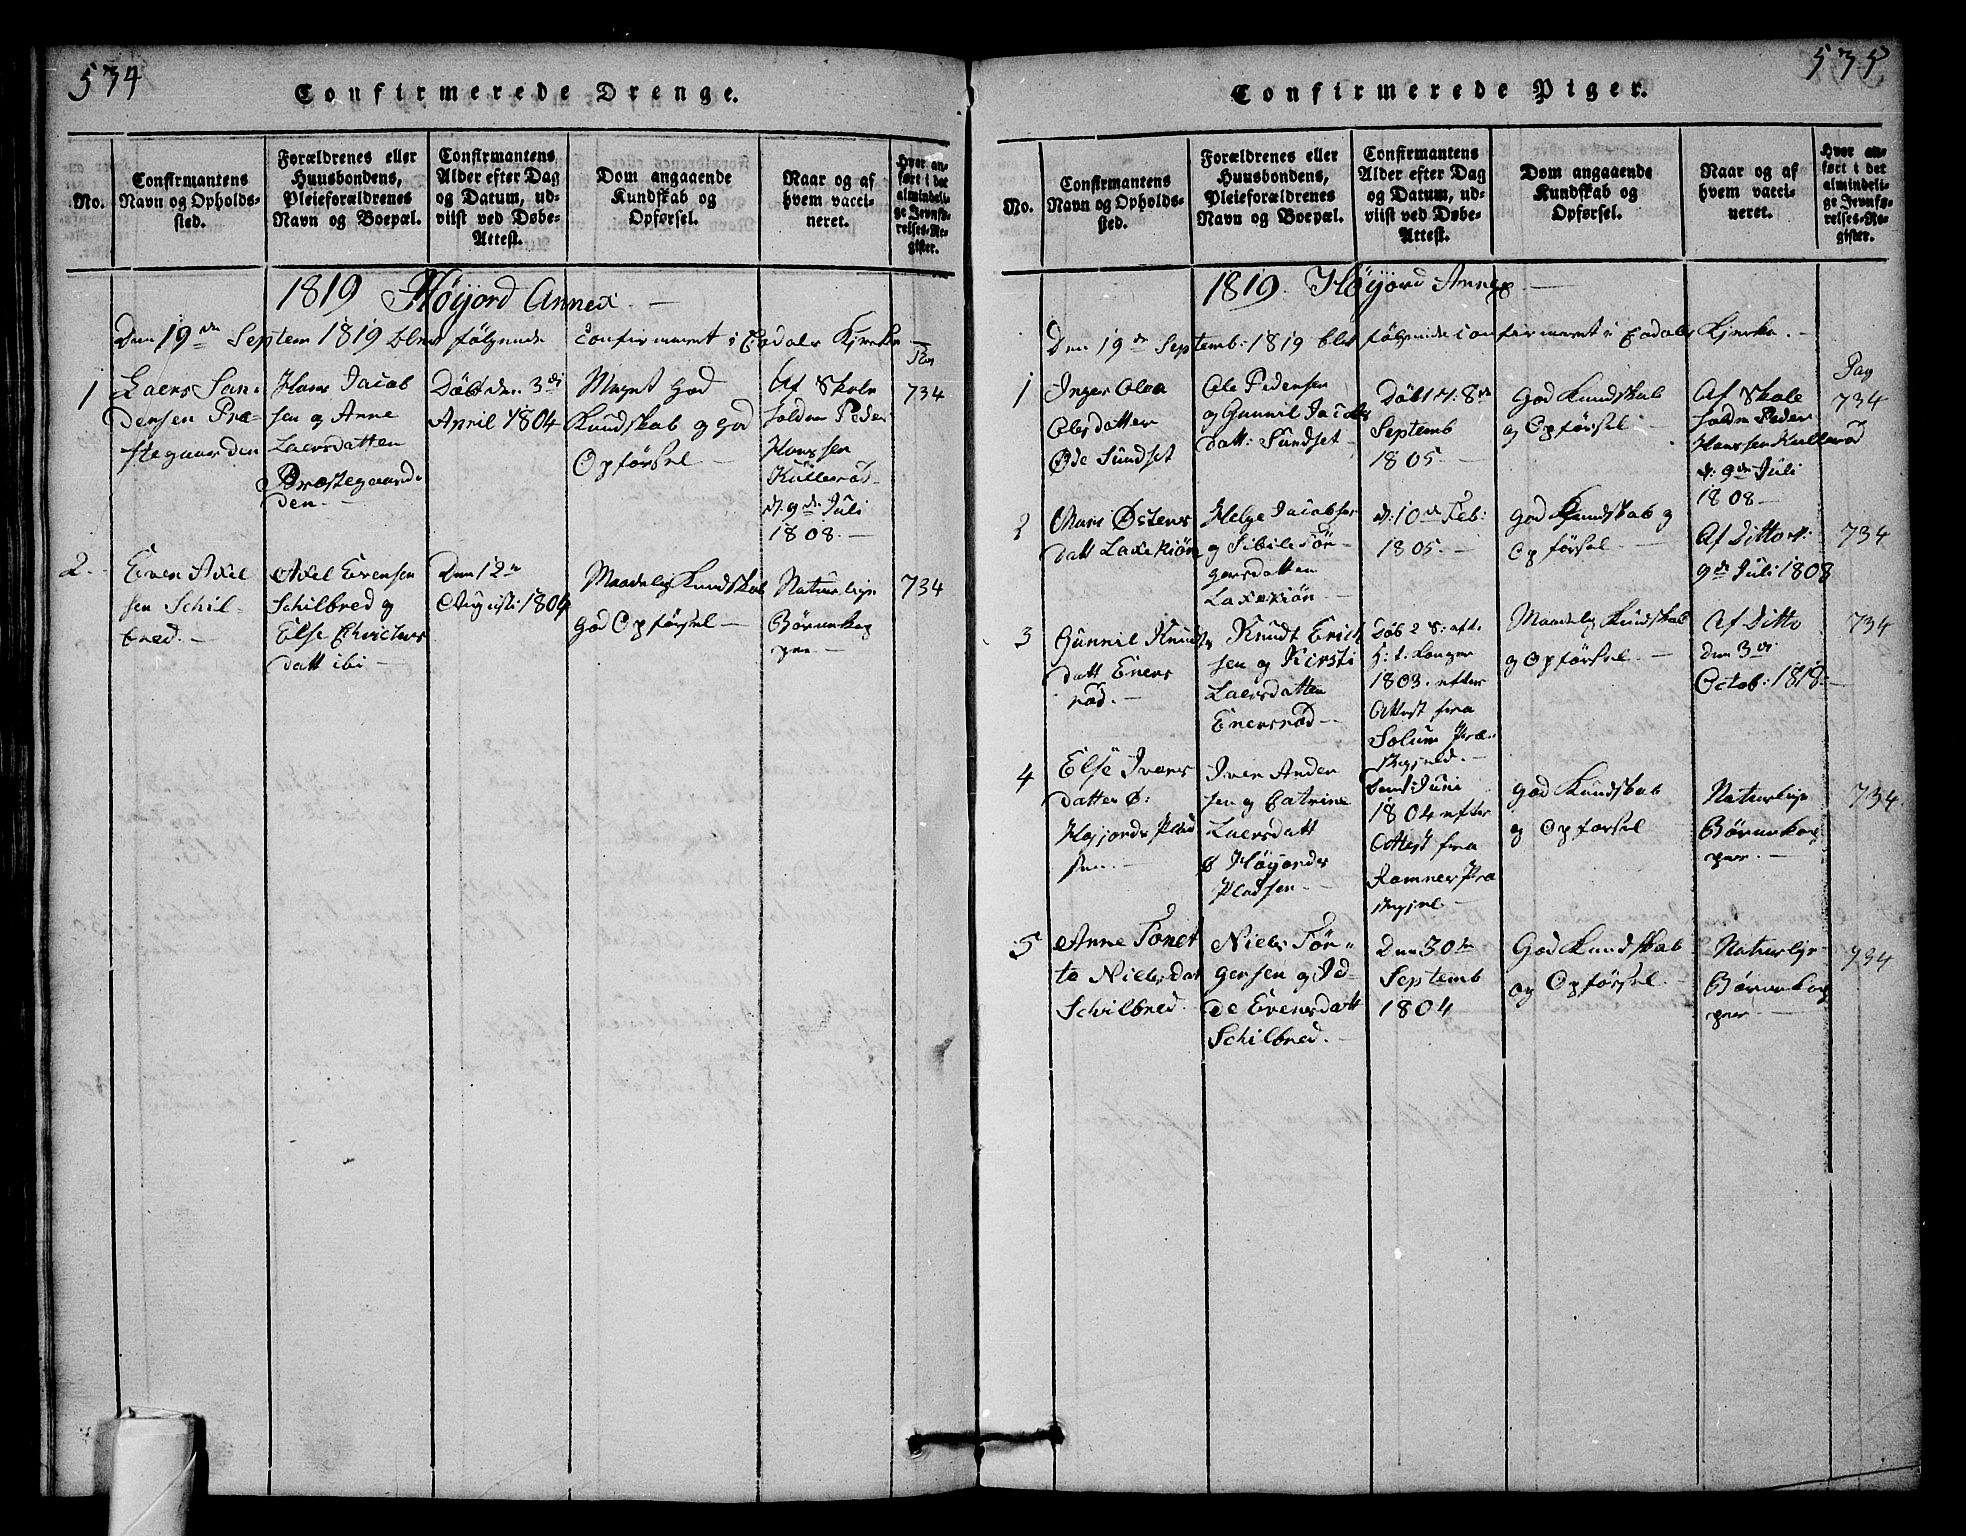 534
Confirmerede Drenge.
No.
Confirmantens
Navn og Opholds-
sted.
Forældrenes eller
Huusbondens,
Pleieforældrenes
Navn og Boepæl.
Confirmantens
Alder efter Dag
og Datum, ud-
viist ved Døbe-
Attest.
Dom angaaende
Kundskab og
Opførsel.
Naar og af
hvem vacci-
neret.
Hvor an-
ført i det
almindeli-
ge Jevnfø-
relses-Re-
gister.
1819 Høijord Annex —
Den 19de Septem 1819 blev følgende confirmeret i Kjerke
1
Laers San-
dersen Præ-
stegaarden
Hans Jacob
sen og Anne
Laersdatter
Præstegaard-
den. —
Døbt den 3di
April 1804
Meget God
Kundskab og God
Opførsel —
Af Skole
holder Peder
Hanssen
Kullerød
d: 9de Juli
1808. —
734
2. -
Even Axel
sen Schil-
bred. —
Axel Evensen
Schilbred og
Else Christens
datt ibi —
Den 12te
Augusti 1804
Maadelig Kundskab
god Opførsel —
Naturlige
Børnekop
per —
734
535
Confirmerede Piger.
No.
Confirmantens
Navn og Opholds-
sted.
Forældrenes eller
Huusbondens,
Pleieforældrenes
Navn og Boepæl.
Confirmantens
Alder efter Dag
og Datum, ud-
viist ved Døbe-
Attest.
Dom angaaende
Kundskab og
Opførsel.
Naar og af
hvem vacci-
neret.
Hvor an-
ført i det
almindeli-
ge Jevnfø-
relses-Re-
gister.
1819. Høijord Annex —
Den 19de Septemb: 1819 blev følgende confirmeret i Kjerke. —
1
Inger Olea
Olesdatter
Øde Sundset
Ole Pedersen
og Gunnil Jacobs
datt: Sundset —
Døbt d. 8de
Septemb
1805 —
God Kundskab
og Opførsel —
Af Skole
holder Peder
Hanssen Kullerød
d: 9de Juli
1808 —
Pag
734
2
Østens
datt
Helge Jacobsen
og Sibile Jør-
gensdatter
d: 10de Feb:
1805. —
God Kundskab og
Opførsel —
Af Ditto d:
9de Juli 1808
734
3
Gunnil Knuds
datt Eners
rød. —
Knudt Erich
sen og Kirsti
Laersdatter
Enersrød —
Døb 2 S: eft.
1803. efter
Attest fra
Solum Præ-
stegjeld. —
Maadelig Kundskab
og Opførsel —
Af Ditto
den 3di
Octob: 1818 —
734
4
Else Ivers
datter Ø:
Iver Ander
sen og Catrine
Laersdatt
Ø Høijords
Pladsen —
Juni
1804 efter
Attest fra
Ramnes Præ
stegjel —
God Kundskab
og Opførsel
Naturlige
Børnekop
per. —
734
5
Anne Tonet
te Nielsdat
Schilbred
Niels Jør-
gensen og Id-
de Evensdatt
Schilbred. —
Den 30te
Septemb
1804
God Kundskab
og Opførsel. —
Naturlige
Børnekop
per —
734